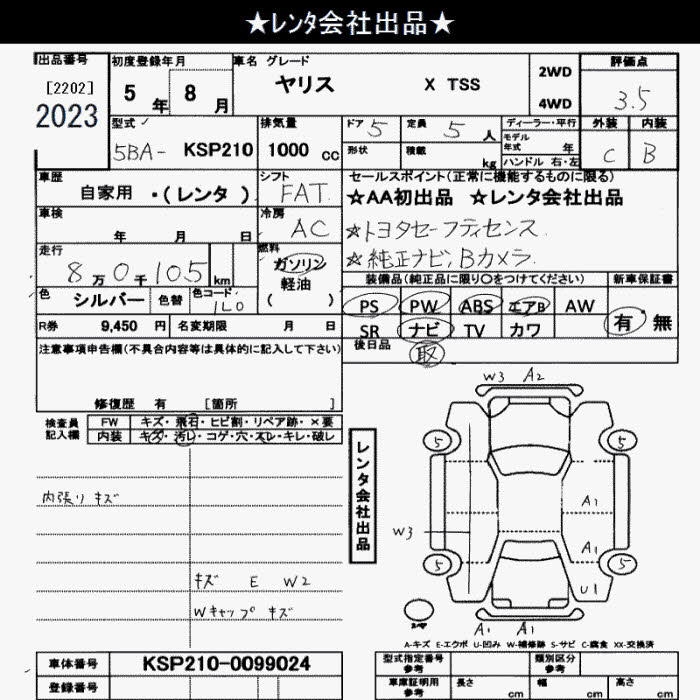 ★レンタ会社出品★
出品番号 初度登録年月 車名 グレード 評価点
[2202] 5年 8月 ヤリス X TSS 2WD 3.5
2023 4WD
型式 排気量 ドア 5 定員 5人 ディーラー・平行 外装 内装
5BA- KSP210 1000cc 形状 積載 kg モデル年式 年 C B
ハンドル 右・左
車歴 シフト セールスポイント(正常に機能するものに限る)
自家用 ・(レンタ) FAT ☆AA初出品 ☆レンタ会社出品
車検 冷房 ☆トヨタセーフティセンス
年 月 日 AC ☆純正ナビ,Bカメラ
走行 燃料
8万0千105km ガソリン
軽油
( )
色 シルバー 色替 色コード 1L0
装備品(純正品に限り〇をつけてください) 新車保証書
PS PW ABS エアB AW 有・無
SR ナビ TV カワ
R券 9,450円 名変期限 月 日
後日品 取
注意事項申告欄(不具合内容等は具体的に記入して下さい)
修復歴 有 [箇所 ]
検査員記入欄 FW キズ・飛石・ヒビ割・リペア跡・×要
内装 キズ・汚レ・コゲ・穴・スレ・キレ・破レ
内張り キズ
キズ E W2
Wキャップ キズ
レンタ会社出品
W3 A2
5 5
A1
W3
A1
5 5
U1
A1 A1
A-キズ E-エクボ U-凹み W-補修跡 S-サビ C-腐食 XX-交換済
車体番号 KSP210-0099024
登録番号
型式指定番号 参考 類別区分 参考
車庫証明用 参考 長さ cm 幅 cm 高さ cm